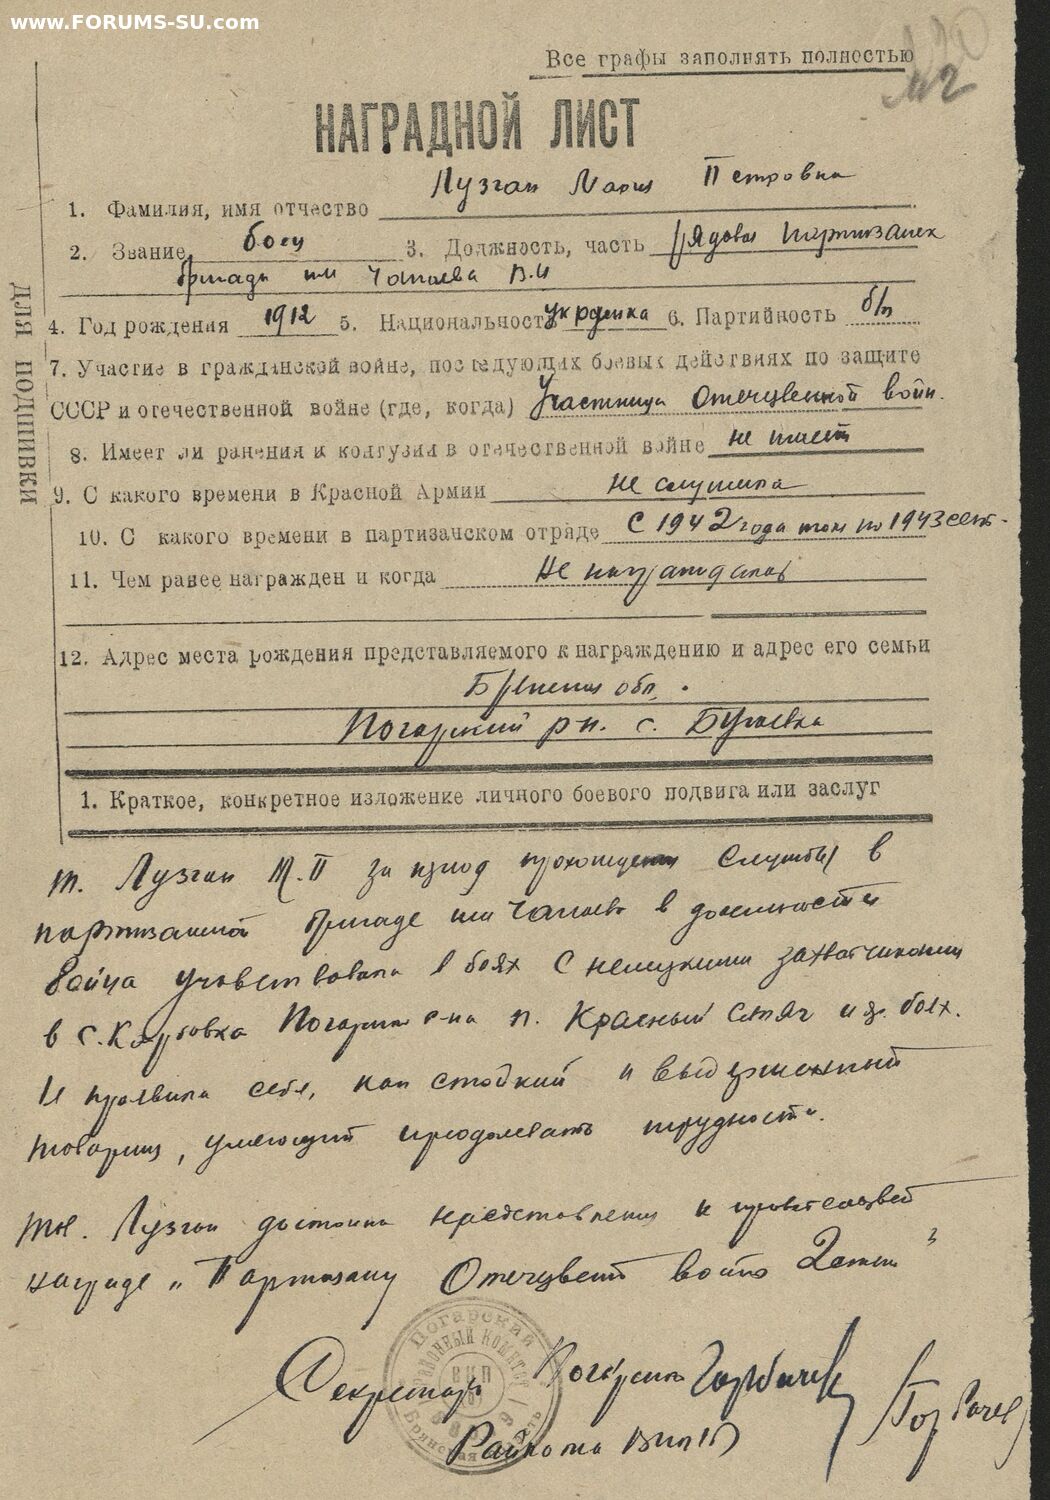 www.FORUMS-SU.com
Все графы заполнять полностью
НАГРАДНОЙ ЛИСТ
1. Фамилия, имя отчество Лузган Мария Петровна
2. Звание боец 3. Должность, часть рядовая партизанск
бригады им Чапаева В.И
4. Год рождения 1912 5. Национальность украинка 6. Партийность б/п
7. Участие в гражданской войне, последующих боевых действиях по защите
СССР и отечественной войне (где, когда) Участница Отечцвенной войн.
8. Имеет ли ранения и контузии в отечественной войне не имеет
9. С какого времени в Красной Армии не служила
10. С какого времени в партизанском отряде с 1942 года по 1943 сент.
11. Чем ранее награжден и когда не награждалась
12. Адрес места рождения представляемого к награждению и адрес его семьи
Брянская обл.
Погарский рн. с. Бугаевка
ДЛЯ ПОДШИВКИ
1. Краткое, конкретное изложение личного боевого подвига или заслуг
т. Лузган М.П за период прохождения службы в
партизанской бригаде им Чапаева в должности
бойца учавствовала в боях с немецкими захватчиками
в с. Погарск р-на п. Красный и др. боях.
И проявила себя, как стойкий и выдержанный
товарищ, умеющий преодолевать трудности.
Лузган достойна представления к правительствен
награде „Партизану Отечцвен войны 2 степ"
Секретарь Погарского Горбачев Горбачев
Райкома ВКП(б)
Погарский
РАЙОННЫЙ КОМИТЕТ
ВКП
Брянская область